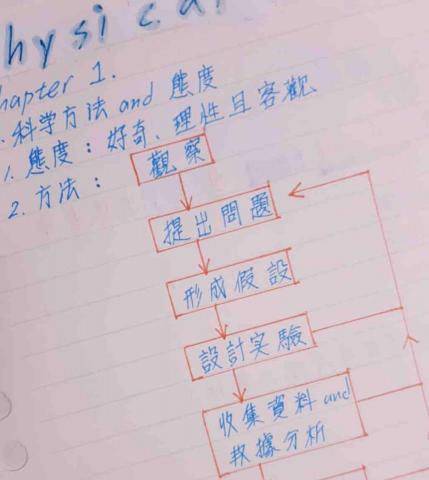 hysical
hapter 1.
科学方法 and 態度
1. 態度：好奇、理性且客觀
2. 方法：
觀察
提出問題
形成假設
設計实驗
收集資料 and
数據分析